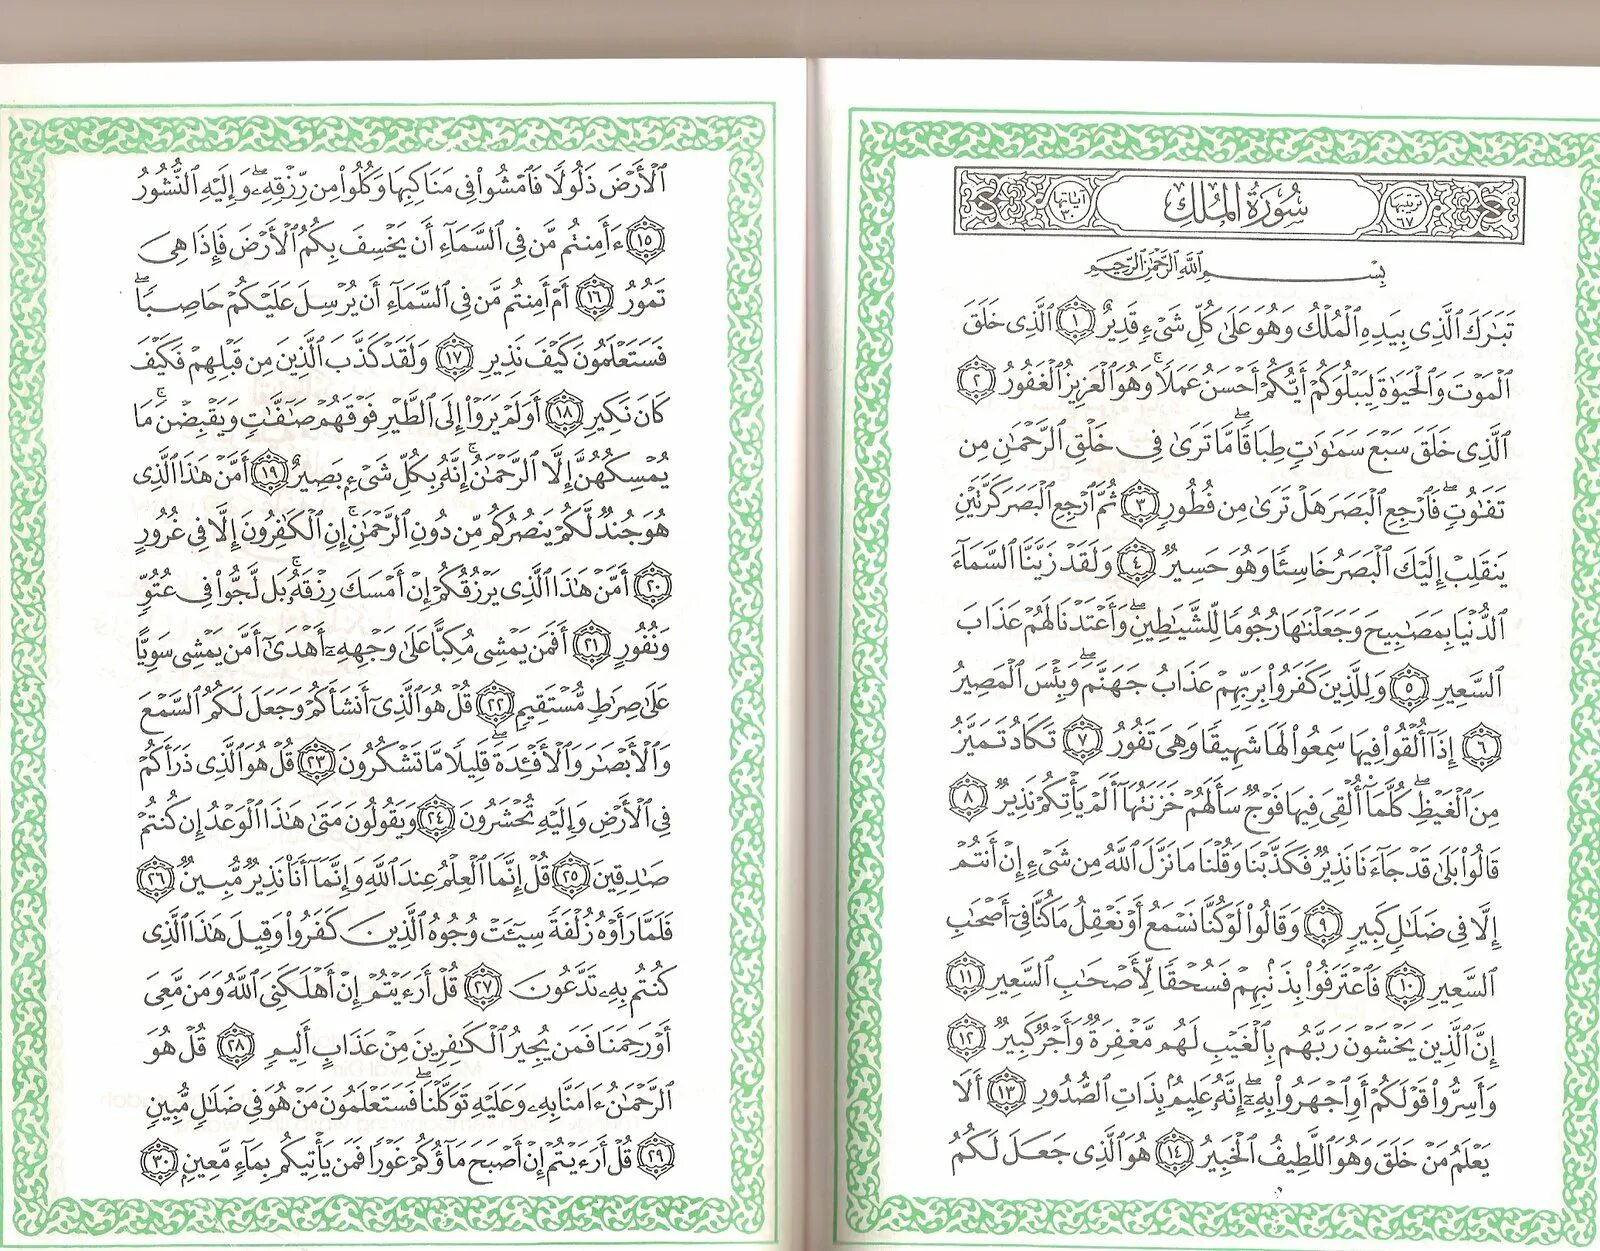 ترتيبها ٦٧ سُورَةُ الْمُلْكِ آياتها ٣٠
بِسْمِ اللَّهِ الرَّحْمَٰنِ الرَّحِيمِ
تَبَارَكَ الَّذِي بِيَدِهِ الْمُلْكُ وَهُوَ عَلَىٰ كُلِّ شَيْءٍ قَدِيرٌ ١ الَّذِي خَلَقَ
الْمَوْتَ وَالْحَيَوٰةَ لِيَبْلُوَكُمْ أَيُّكُمْ أَحْسَنُ عَمَلًا ۚ وَهُوَ الْعَزِيزُ الْغَفُورُ ٢
الَّذِي خَلَقَ سَبْعَ سَمَاوَاتٍ طِبَاقًا ۖ مَّا تَرَىٰ فِي خَلْقِ الرَّحْمَٰنِ مِن
تَفَاوُتٍ ۖ فَارْجِعِ الْبَصَرَ هَلْ تَرَىٰ مِن فُطُورٍ ٣ ثُمَّ ارْجِعِ الْبَصَرَ كَرَّتَيْنِ
يَنقَلِبْ إِلَيْكَ الْبَصَرُ خَاسِئًا وَهُوَ حَسِيرٌ ٤ وَلَقَدْ زَيَّنَّا السَّمَاءَ
الدُّنْيَا بِمَصَابِيحَ وَجَعَلْنَاهَا رُجُومًا لِّلشَّيَاطِينِ ۖ وَأَعْتَدْنَا لَهُمْ عَذَابَ
السَّعِيرِ ٥ وَلِلَّذِينَ كَفَرُوا بِرَبِّهِمْ عَذَابُ جَهَنَّمَ ۖ وَبِئْسَ الْمَصِيرُ
٦ إِذَا أُلْقُوا فِيهَا سَمِعُوا لَهَا شَهِيقًا وَهِيَ تَفُورُ ٧ تَكَادُ تَمَيَّزُ
مِنَ الْغَيْظِ ۖ كُلَّمَا أُلْقِيَ فِيهَا فَوْجٌ سَأَلَهُمْ خَزَنَتُهَا أَلَمْ يَأْتِكُمْ نَذِيرٌ ٨
قَالُوا بَلَىٰ قَدْ جَاءَنَا نَذِيرٌ فَكَذَّبْنَا وَقُلْنَا مَا نَزَّلَ اللَّهُ مِن شَيْءٍ إِنْ أَنتُمْ
إِلَّا فِي ضَلَالٍ كَبِيرٍ ٩ وَقَالُوا لَوْ كُنَّا نَسْمَعُ أَوْ نَعْقِلُ مَا كُنَّا فِي أَصْحَابِ
السَّعِيرِ ١٠ فَاعْتَرَفُوا بِذَنبِهِمْ فَسُحْقًا لِّأَصْحَابِ السَّعِيرِ ١١
إِنَّ الَّذِينَ يَخْشَوْنَ رَبَّهُم بِالْغَيْبِ لَهُم مَّغْفِرَةٌ وَأَجْرٌ كَبِيرٌ ١٢
وَأَسِرُّوا قَوْلَكُمْ أَوِ اجْهَرُوا بِهِ ۖ إِنَّهُ عَلِيمٌ بِذَاتِ الصُّدُورِ ١٣ أَلَا
يَعْلَمُ مَنْ خَلَقَ وَهُوَ اللَّطِيفُ الْخَبِيرُ ١٤ هُوَ الَّذِي جَعَلَ لَكُمُ
الْأَرْضَ ذَلُولًا فَامْشُوا فِي مَنَاكِبِهَا وَكُلُوا مِن رِّزْقِهِ ۖ وَإِلَيْهِ النُّشُورُ
١٥ ءَأَمِنتُم مَّن فِي السَّمَاءِ أَن يَخْسِفَ بِكُمُ الْأَرْضَ فَإِذَا هِيَ
تَمُورُ ١٦ أَمْ أَمِنتُم مَّن فِي السَّمَاءِ أَن يُرْسِلَ عَلَيْكُمْ حَاصِبًا ۖ
فَسَتَعْلَمُونَ كَيْفَ نَذِيرِ ١٧ وَلَقَدْ كَذَّبَ الَّذِينَ مِن قَبْلِهِمْ فَكَيْفَ
كَانَ نَكِيرِ ١٨ أَوَلَمْ يَرَوْا إِلَى الطَّيْرِ فَوْقَهُمْ صَافَّاتٍ وَيَقْبِضْنَ ۚ مَا
يُمْسِكُهُنَّ إِلَّا الرَّحْمَٰنُ ۚ إِنَّهُ بِكُلِّ شَيْءٍ بَصِيرٌ ١٩ أَمَّنْ هَٰذَا الَّذِي
هُوَ جُندٌ لَّكُمْ يَنصُرُكُم مِّن دُونِ الرَّحْمَٰنِ ۚ إِنِ الْكَافِرُونَ إِلَّا فِي غُرُورٍ
٢٠ أَمَّنْ هَٰذَا الَّذِي يَرْزُقُكُمْ إِنْ أَمْسَكَ رِزْقَهُ ۚ بَل لَّجُّوا فِي عُتُوٍّ
وَنُفُورٍ ٢١ أَفَمَن يَمْشِي مُكِبًّا عَلَىٰ وَجْهِهِ أَهْدَىٰ أَمَّن يَمْشِي سَوِيًّا
عَلَىٰ صِرَاطٍ مُّسْتَقِيمٍ ٢٢ قُلْ هُوَ الَّذِي أَنشَأَكُمْ وَجَعَلَ لَكُمُ السَّمْعَ
وَالْأَبْصَارَ وَالْأَفْئِدَةَ ۖ قَلِيلًا مَّا تَشْكُرُونَ ٢٣ قُلْ هُوَ الَّذِي ذَرَأَكُمْ
فِي الْأَرْضِ وَإِلَيْهِ تُحْشَرُونَ ٢٤ وَيَقُولُونَ مَتَىٰ هَٰذَا الْوَعْدُ إِن كُنتُمْ
صَادِقِينَ ٢٥ قُلْ إِنَّمَا الْعِلْمُ عِندَ اللَّهِ وَإِنَّمَا أَنَا نَذِيرٌ مُّبِينٌ ٢٦
فَلَمَّا رَأَوْهُ زُلْفَةً سِيئَتْ وُجُوهُ الَّذِينَ كَفَرُوا وَقِيلَ هَٰذَا الَّذِي
كُنتُم بِهِ تَدَّعُونَ ٢٧ قُلْ أَرَءَيْتُمْ إِنْ أَهْلَكَنِيَ اللَّهُ وَمَن مَّعِيَ
أَوْ رَحِمَنَا فَمَن يُجِيرُ الْكَافِرِينَ مِنْ عَذَابٍ أَلِيمٍ ٢٨ قُلْ هُوَ
الرَّحْمَٰنُ ءَامَنَّا بِهِ وَعَلَيْهِ تَوَكَّلْنَا ۖ فَسَتَعْلَمُونَ مَنْ هُوَ فِي ضَلَالٍ مُّبِينٍ
٢٩ قُلْ أَرَءَيْتُمْ إِنْ أَصْبَحَ مَاؤُكُمْ غَوْرًا فَمَن يَأْتِيكُم بِمَاءٍ مَّعِينٍ ٣٠